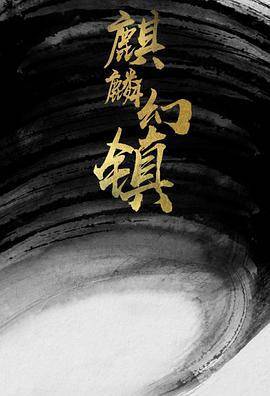 麒麟幻镇